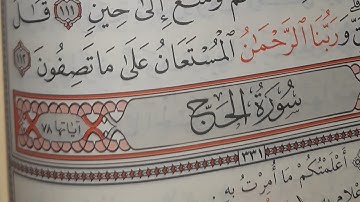 وَمَتَٰعٌ إِلَىٰ حِينٍ ١١١ قَٰلَ
وَرَبُّنَا الرَّحْمَٰنُ الْمُسْتَعَانُ عَلَىٰ مَا تَصِفُونَ ١١٢
سُورَةُ الْحَجِّ آيَاتُهَا ٧٨
٣٣١
أَعْلَمْتُكُمْ مَا أُمِرْتُ بِهِ